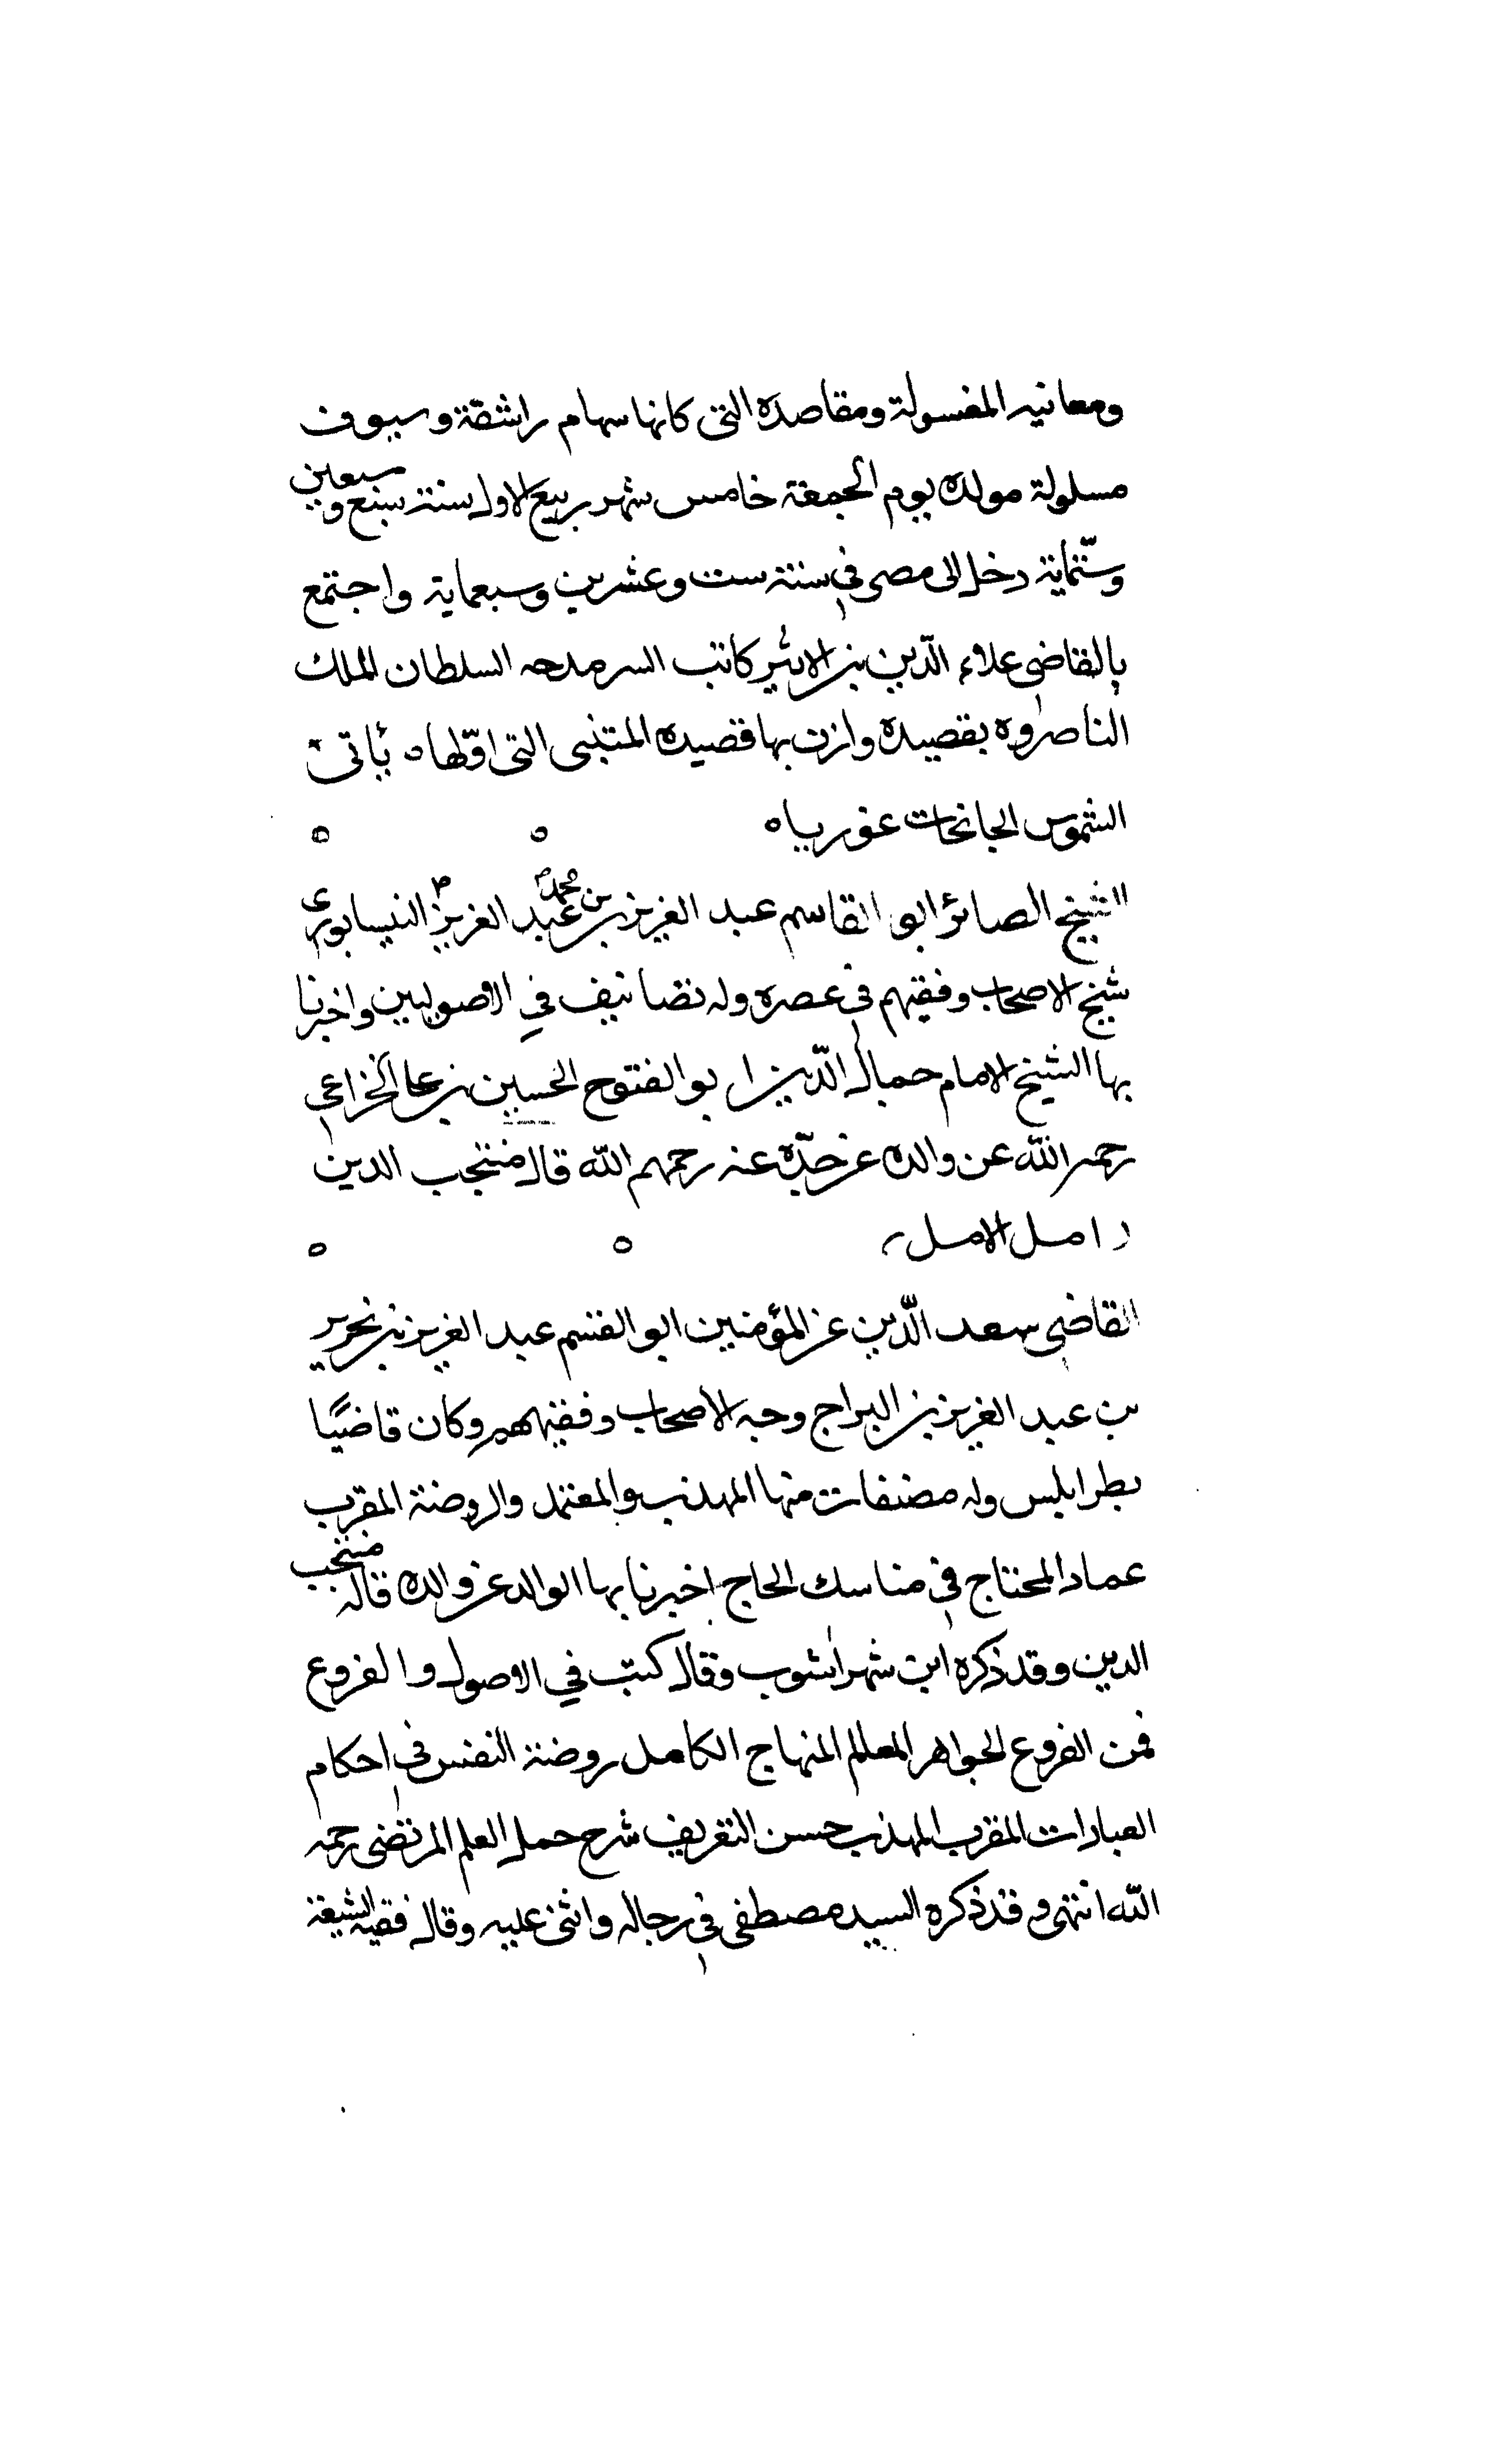 ومعانيه المغسولة ومقاصده التى كانها سهام راشقة وسيوف
مسلولة مولده يوم الجمعة خامس شهر ربيع الاول سنة سبع وسبعين
وستّماية دخل الى مصر فى سنة ست وعشرين وسبعماية واجتمع
بالقاضى علاء الدّين بن الاثير كاتب السر مدحه السلطان الملك
الناصر وه بقصيدة وازن بها قصيدة المتنبى التى اوّلها ه بأتى
الشموس الجانحات غوربا ه
الشيخ الصائن ابو القاسم عبد العزيز بن محمد بن عبد العزيز النيسابورى
شيخ الاصحاب وفقيهم فى عصره وله تصانيف في الاصوليين واخبرنا
بها الشيخ الامام جمال الدّين ابو الفتوح الحسين بن على الخزاعى
رحمه الله عن والده عن جدّه عنه رحمهم الله قال منتجب الدين
امل الامل
القاضى سعد الدّين عز المؤمنين ابو القسم عبد العزيز بن نحرير
بن عبد العزيز بن البراج وجه الاصحاب وفقيههم وكان قاضيًا
بطرابلس وله مصنفات منها المهذب والمعتمد والروضة المقرب
عماد المحتاج فى مناسك الحاج اخبرنا بها الوالد عن والده قاله منتجب
الدين وقد ذكره ابن شهراشوب وقال كتب في الاصول والفروع
فمن الفروع الجواهر المعالم المنهاج الكامل روضة النفس فى احكام
العبادات المقرب المهذب حسن التعريف شرح جمل العلم المرتضى رحمه
الله انتهى وقد ذكره السيد مصطفى فى رجاله واثنى عليه وقال فقيه الشيعة